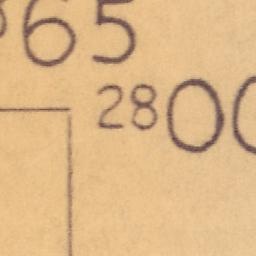 865
2800